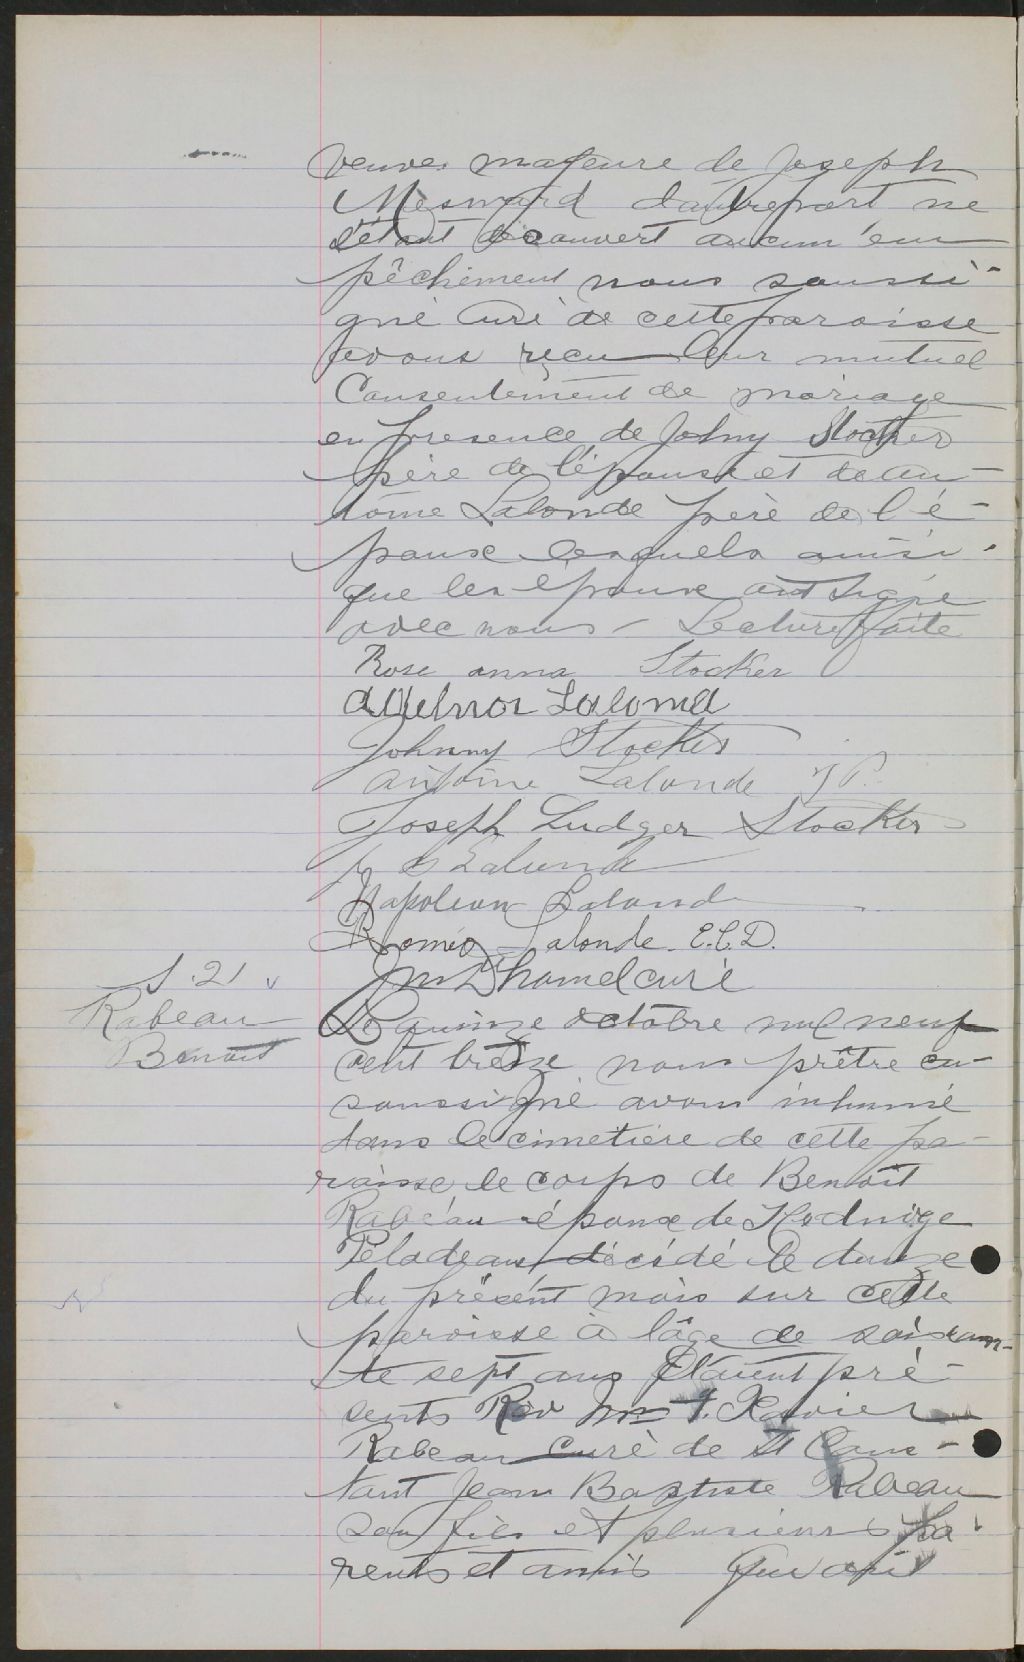 veuve majeure de Joseph
Mesnard d'autrepart ne
s'étant découvert aucun em
pêchement nous soussi-
gné curé de cette paroisse
avons reçu leur mutuel
Consentement de mariage
en presence de Johny Stocker
père de l'épouse et de An-
toine Lalonde père de l'é-
poux lesquels ainsi
que les époux ont signé
avec nous - Lecture faite
Rose anna Stocker
Lalond
Johnny Stocker
antoine Lalonde J P.
Joseph Ludger Stocker
Lalond
Napoleon Lalond
Roméo Lalonde. E.C.D.
J M Duhamel curé
S. 21
Rabeau
Benoit
Le quinze octobre mil neuf
cent treize nous prêtre cu-
soussigné avons inhumé
dans le cimetière de cette pa-
roisse le corps de Benoît
Rabeau époux de Hedwige
Péladeau décédé le douze
du présent mois sur cette
paroisse à l'âge de soixan-
te sept ans Etaient pré-
sents Rév Mr F. Xavier
Rabeau curé de St Cons-
tant Jean Baptiste Rabeau
son fils et plusieurs pa-
rents et amis Qui ont